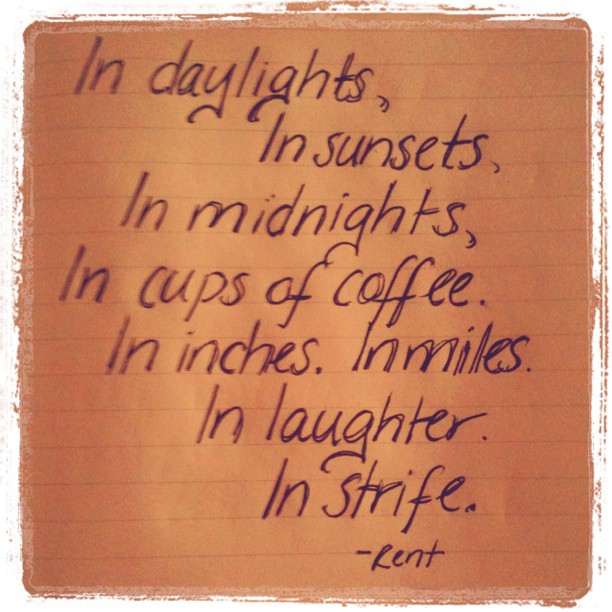 In daylights,
In sunsets,
In midnights,
In cups of coffee.
In inches. In miles.
In laughter.
In strife.
-Rent